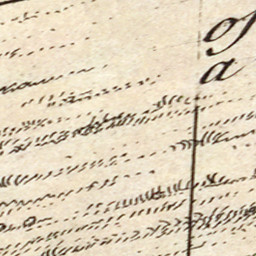 of
a